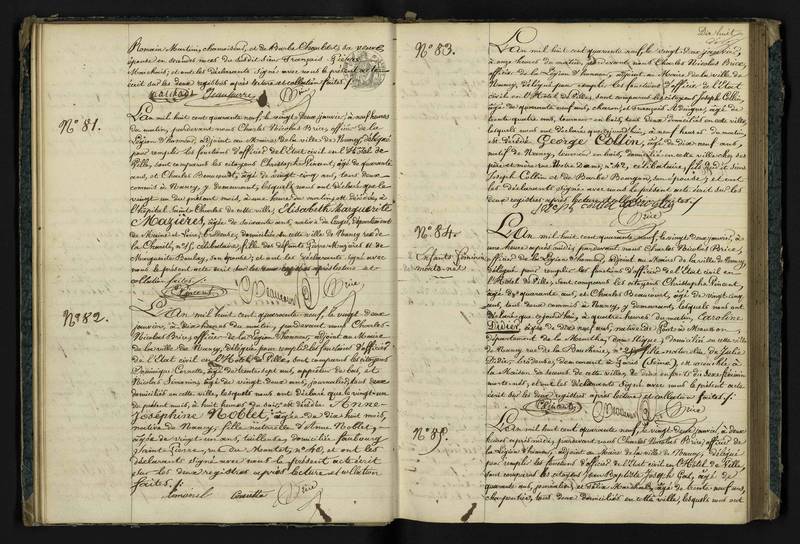 Romain Martin, charcutier, et de Barbe Chambelet, sa veuve,
épouse en secondes noces du dit sieur François
et les déclarants signé avec nous le présent acte
écrit sur les deux registres après lecture et collation faites /.
Brice
N° 81.
L'An mil huit cent quarante neuf, le vingt deux janvier, à neuf heures
du matin, pardevant nous Charles Nicolas Brice, officier de la
Légion d'honneur, adjoint au Maire de la ville de Nancy, délégué
pour remplir les fonctions d'officier de l'Etat civil en l'Hôtel de
Ville, sont comparus les citoyens Christophe Pincent, âgé de quarante
ans, et Charles Beaucourt, âgé de vingt cinq ans, tous deux
commis à Nancy, y demeurant, lesquels nous ont déclaré que le
vingt un du présent mois, à une heure du matin, est décédée à
l'hôpital Saint Charles de cette ville, Elisabeth Marguerite
Mazières, âgée de soixante ans, native de
de Maine et Loire, domiciliée en cette ville de Nancy rue de
la Charité, n° 15, célibataire, fille des défunts Pierre Mazières et de
Marguerite son épouse; et ont les déclarants signé avec
nous le présent acte écrit sur les deux registres après lecture et
collation faites /.
C. Pincent Beaucourt Brice
N° 82.
L'An mil huit cent quarante neuf, le vingt deux
janvier, à dix heures du matin, pardevant nous Charles
Nicolas Brice, officier de la Légion d'honneur, adjoint au Maire
de la ville de Nancy, délégué pour remplir les fonctions d'officier
de l'Etat civil en l'Hôtel de Ville, sont comparus les citoyens
Dominique âgé de trente sept ans, et
Nicolas âgé de vingt deux ans, journalier, tous deux
domiciliés en cette ville, lesquels nous ont déclaré que le vingt un
du présent mois, à huit heures du soir, est décédée Anne
Joséphine Noblet, âgée de dix huit mois,
native de Nancy, fille naturelle d'Anne Noblet,
âgée de vingt un ans, tailleuse, domiciliée faubourg
Saint Pierre, rue du Montet, n° 40, et ont les
déclarants signé avec nous le présent acte écrit
sur les deux registres après lecture et collation
faites /.
Brice
Dix huit
N° 83.
L'An mil huit cent quarante neuf, le vingt deux janvier,
à onze heures du matin, pardevant nous Charles Nicolas Brice,
officier de la Légion d'honneur, adjoint au Maire de la ville de
Nancy, délégué pour remplir les fonctions d'officier de l'Etat
civil en l'Hôtel de Ville, sont comparus les citoyens Joseph Collin,
âgé de quarante neuf ans, charron, et François
âgé de trente quatre ans, tonneur en bois, tous deux domiciliés en cette ville,
lesquels nous ont déclaré que aujourd'hui, à neuf heures du matin
est décédé George Collin, âgé de dix neuf ans,
natif de Nancy, tourneur en bois, domicilié en cette ville chez ses
père et mère rue Notre Dame, n° 62, célibataire, fils du dit sieur
Joseph Collin et de Barbe son épouse; et ont
les déclarants signé avec nous le présent acte écrit sur les
deux registres après lecture et collation faites /.
Collin Brice
N° 84.
Enfants féminins
morts-nés
L'An mil huit cent quarante neuf, le vingt deux janvier, à
une heure après midi, pardevant nous Charles Nicolas Brice,
officier de la Légion d'honneur, adjoint au Maire de la ville de Nancy,
délégué pour remplir les fonctions d'officier de l'Etat civil en
l'Hôtel de Ville, sont comparus les citoyens Christophe Pincent,
âgé de quarante ans, et Charles Beaucourt, âgé de vingt cinq
ans, tous deux commis à Nancy, y demeurant, lesquels nous ont
déclaré que aujourd'hui, à quatre heures du matin, Caroline
Didier, âgée de dix neuf ans, native de Pont à Mousson,
département de la Meurthe, domiciliée en cette ville
de Nancy rue de la Boucherie, n° fille naturelle de Julie
Didier, demeurant à Paris (Seine), est accouchée, à
la Maison de secours de cette ville, de deux enfants du sexe féminin
morts-nés, et ont les déclarants signé avec nous le présent acte
écrit sur les deux registres après lecture et collation faites /.
C. Pincent Beaucourt Brice
N° 85.
L'An mil huit cent quarante neuf, le vingt deux janvier, à deux
heures après midi, pardevant nous Charles Nicolas Brice, officier de
la Légion d'honneur, adjoint au Maire de la ville de Nancy, délégué
pour remplir les fonctions d'officier de l'Etat civil en l'Hôtel de Ville,
sont comparus les citoyens Jean Baptiste Joseph âgé de
quarante ans, journalier, et Félix Marchal, âgé de trente neuf ans,
charpentier, tous deux domiciliés en cette ville, lesquels nous ont